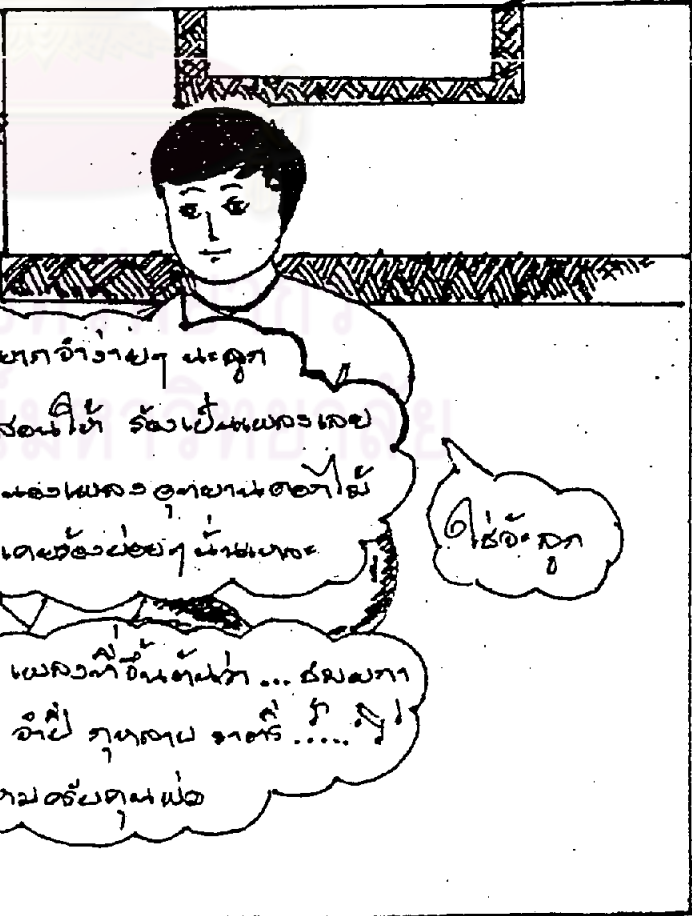 ยากจำง่ายๆ นะลูก
สอนให้ ร้องเป็นเพลงเลย
นองเพลง อุทยานดอกไม้
เคยร้องบ่อยๆ นั่นแหละ
ใช่จ้ะ ลูก
เพลงที่ขึ้นต้นว่า ... ชมผกา
จำปี กุหลาบ ราตรี .....
ไหมครับคุณพ่อ